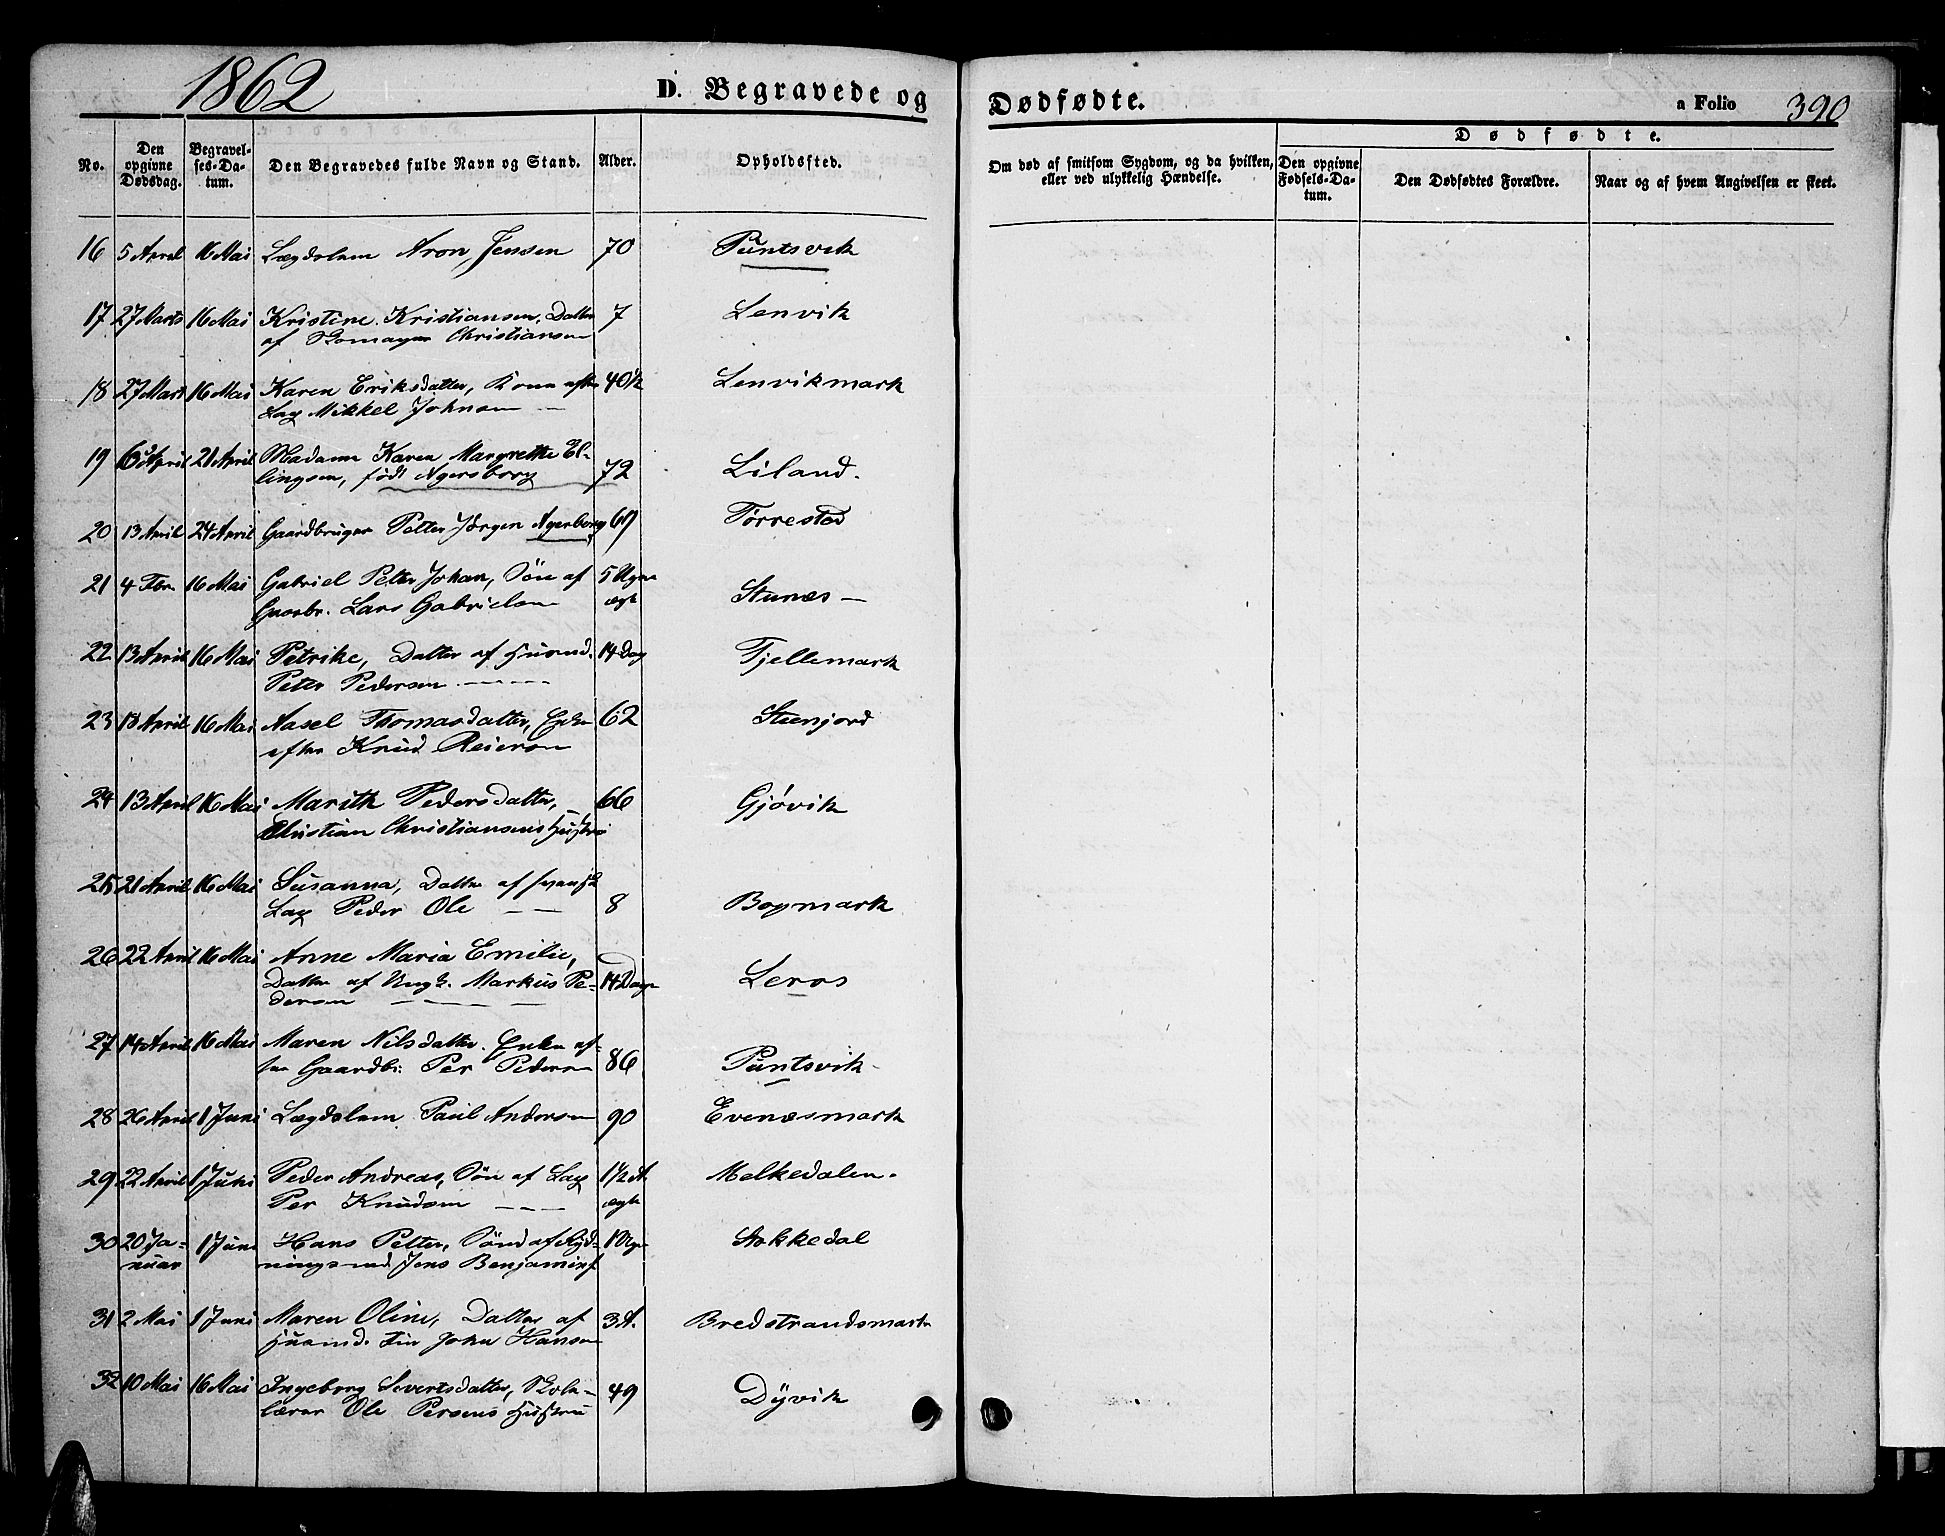 1862
D. Begravede og
Dødfødte.
a Folio 390
No.
Den opgivne Dødsdag.
Begravelses-Datum.
Den Begravedes fulde Navn og Stand.
Alder.
Opholdssted.
Om død af smitsom Sygdom, og da hvilken, eller ved ulykkelig Hændelse.
Dødfødte.
Den opgivne Fødsels-Datum.
Den Dødfødtes Forældre.
Naar og af hvem Angivelsen er skeet.
16 5 April 16 Mai Lægdslem Aron Jensen 70 Puntsvik
17 27 Marts 16 Mai Kristine Kristiansen, Datter 7 Lenvik
af Christiansen
18 27 Marts 16 Mai Karen Eriksdatter, Kone efter 40 Lenvikmark
Lap Mikkel Johnsen
19 6 April 21 April Madame Karen Margrethe El-
lingsen, født Agersborg 72 Liland.
20 13 April 24 April Gaardbruger Petter Jørgen Agerborg 69 Tørrestad
21 4 Fbr 16 Mai Gabriel Peter Johan, Søn af 5 Uger
Gaardbr. Lars Gabrielsen ægte Stunes
22 13 April 16 Mai Petrike, Datter af Husmd. 14 Dag Tjellemark
Peter Pedersen
23 18 April 16 Mai Aasel Thomasdatter, Enke 62 Steenjord
efter Knud Reiersen
24 13 April 16 Mai Marith Pedersdatter, 66 Gjøvik
Christian Christiansens Hustru
25 21 April 16 Mai Susanna, Datter af svensk
Lap Peder Ole 8 Bogmark
26 22 April 16 Mai Anne Maria Emilie,
Datter af Ungk. Markus Pe- 14 Dage Leros
dersen
27 14 April 16 Mai Maren Nilsdatter. Enke ef-
ter Gaardbr: Per Pedersen 86 Puntsvik
28 26 April 1 Juni Lægdslem Paul Andersen 90 Evenæsmark
29 22 April 1 Juni Peder Andreas, Søn af Lap 1½ A Melkedalen.
Per Knudsen ægte
30 20 Ja- 1 Juni Hans Petter, Søn af Ryd- 1 Uge Stokkedal
nuar ningsmd Jens Benjamins
31 2 Mai 1 Juni Maren Oline, Datter af 3 A. Bredstrandsmark
Husmd. Fin John Hansen
32 10 Mai 16 Mai Ingeborg Sivertsdatter, Skole- 49 Dyvik
lærer Ole Persens Hustru